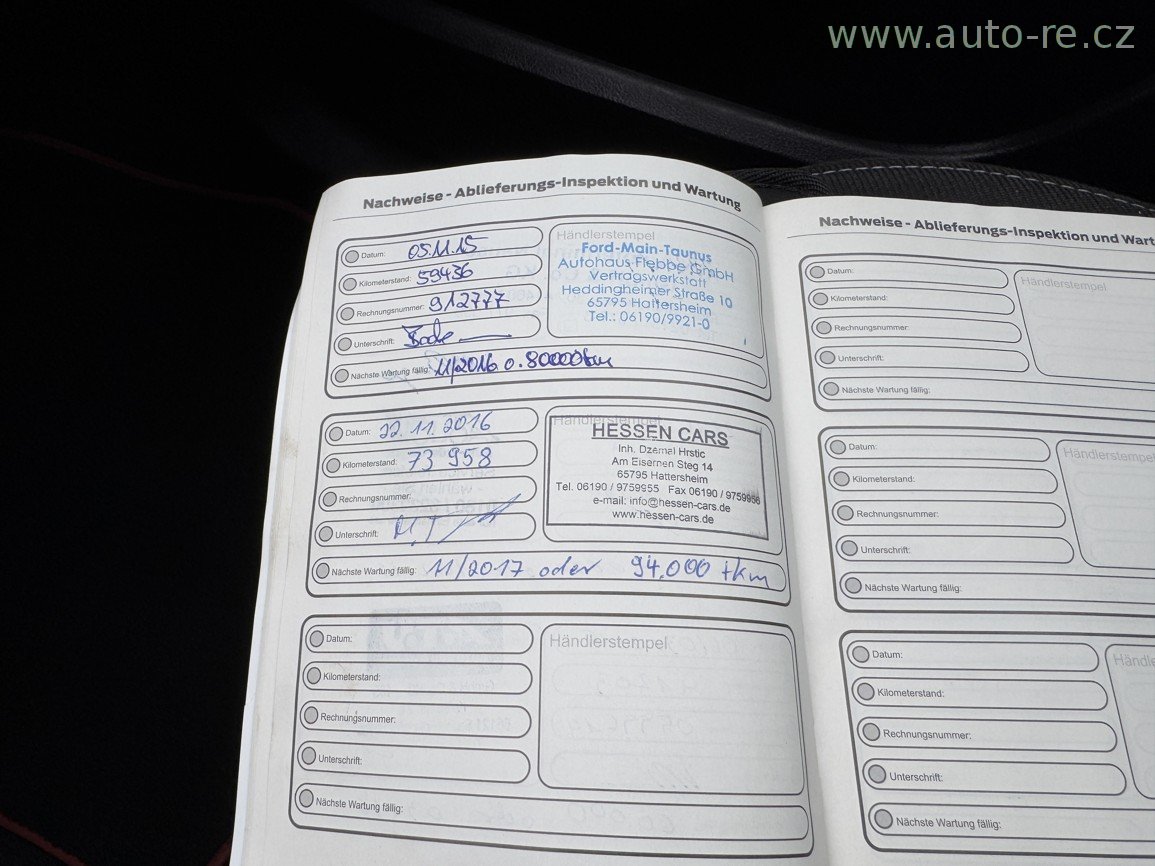 www.auto-re.cz
Nachweise - Ablieferungs-Inspektion und Wartung
Datum: 05.11.15
Kilometerstand: 59436
Rechnungsnummer: 912777
Unterschrift:
Nächste Wartung fällig: 11/2016 o. 80000 km
Händlerstempel
Ford-Main-Taunus
Autohaus Flebbe GmbH
Vertragswerkstatt
Heddingheimer Straße 10
65795 Hattersheim
Tel.: 06190/9921-0
Datum: 22.11.2016
Kilometerstand: 73 958
Rechnungsnummer:
Unterschrift:
Nächste Wartung fällig: 11/2017 oder 94.000 tkm
Händlerstempel
HESSEN CARS
Inh. Dzemal Hrstic
Am Eisernen Steg 14
65795 Hattersheim
Tel. 06190 / 9759955 Fax 06190 / 9759956
e-mail: info@hessen-cars.de
www.hessen-cars.de
Datum:
Kilometerstand:
Rechnungsnummer:
Unterschrift:
Nächste Wartung fällig:
Händlerstempel
Nachweise - Ablieferungs-Inspektion und Wart
Datum:
Kilometerstand:
Rechnungsnummer:
Unterschrift:
Nächste Wartung fällig:
Händlerstempel
Datum:
Kilometerstand:
Rechnungsnummer:
Unterschrift:
Nächste Wartung fällig:
Händlerstempel
Datum:
Kilometerstand:
Rechnungsnummer:
Unterschrift:
Nächste Wartung fällig:
Händle